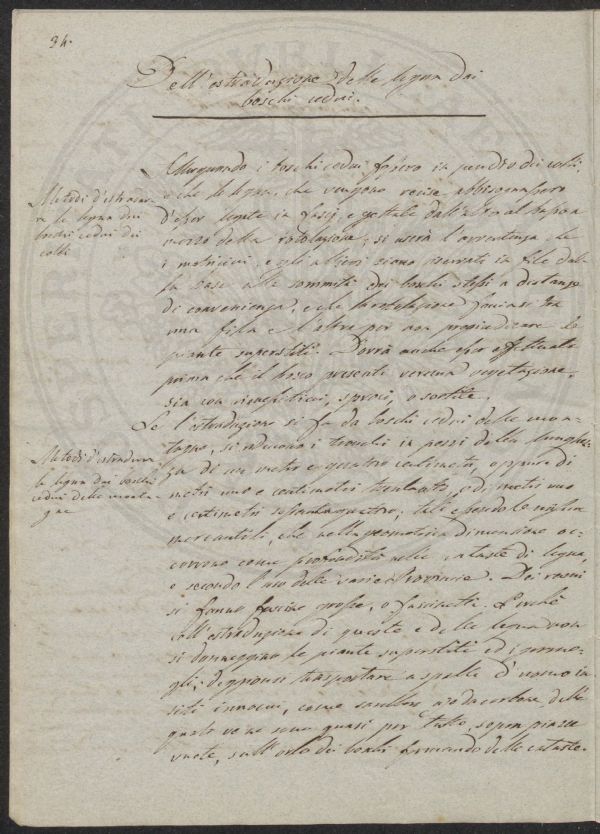 34.
Dell'estraduzione delle legna dai
boschi cedui.
Metodi d'estrarre
la legna dai
boschi cedui dei
colli
Allorquando i boschi cedui fossero in pendio dei colli,
e che le legna, che vengono recise abbisognassero
d'esser legate in fasci, e gettate dall'alto al basso a
mezzo della rotolazione, si userà l'avvertenza che
i matricini, e gli allievi siano riservati in file dalla
base alla sommità dei boschi stessi a distanza
di convenienza, e che la rotolazione facciasi tra
una fila e l'altra per non pregiudicare le
piante superstiti. Dovrà anche esser effettuata
prima che il bosco presenti veruna vegetazione,
sia con rimettiticci, sprocci, o sortite.
Metodi d'estradurre
la legna dai boschi
cedui delle monta-
gne
Se l'estraduzione si fa da boschi cedui delle mon-
tagne, si riducono i tronchi in pezzi della lunghez-
za di un metro e quattro centimetri, oppure di
metri uno e centimetri trentaotto, o di metri uno
e centimetri settantaquattro; tali essendo le
mercantili, che nella geometrica dimensione oc-
corrono come profondità nelle cataste di legna,
e secondo l'uso delle varie Provincie. Dei rami
si fanno fascine grosse, o fascinette. Perchè
coll'estraduzione di queste e delle legna non
si danneggino le piante superstiti ed i germo-
gli, deggionsi trasportare a spalle d'uomo in
siti innocui, come sarebbero aje da carbone, delle
quali ve ne sono quasi per tutto, sopra piazze
vuote, sull'orlo dei boschi formando delle cataste.